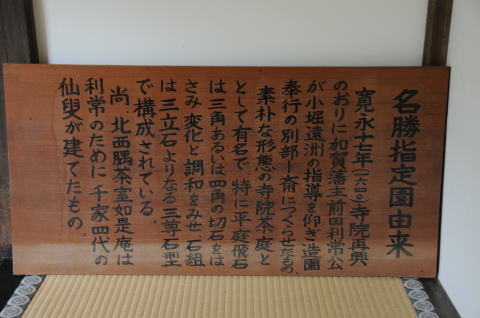 名勝指定園由来
寛永十七年(一六四〇)寺院再興
のおりに加賀藩主前田利常公
が小堀遠洲の指導を仰ぎ、造園
奉行の別部卜斎につくらせたもの。
素朴な形態の寺院茶庭と
として有名で、特に平庭飛石
は三角あるいは四角の切石をは
さみ変化と調和をみせ、石組
は三立石よりなる三尊石型
で構成されている。
尚、北西隅茶室如是庵は
利常のために千家四代の
仙叟が建てたもの